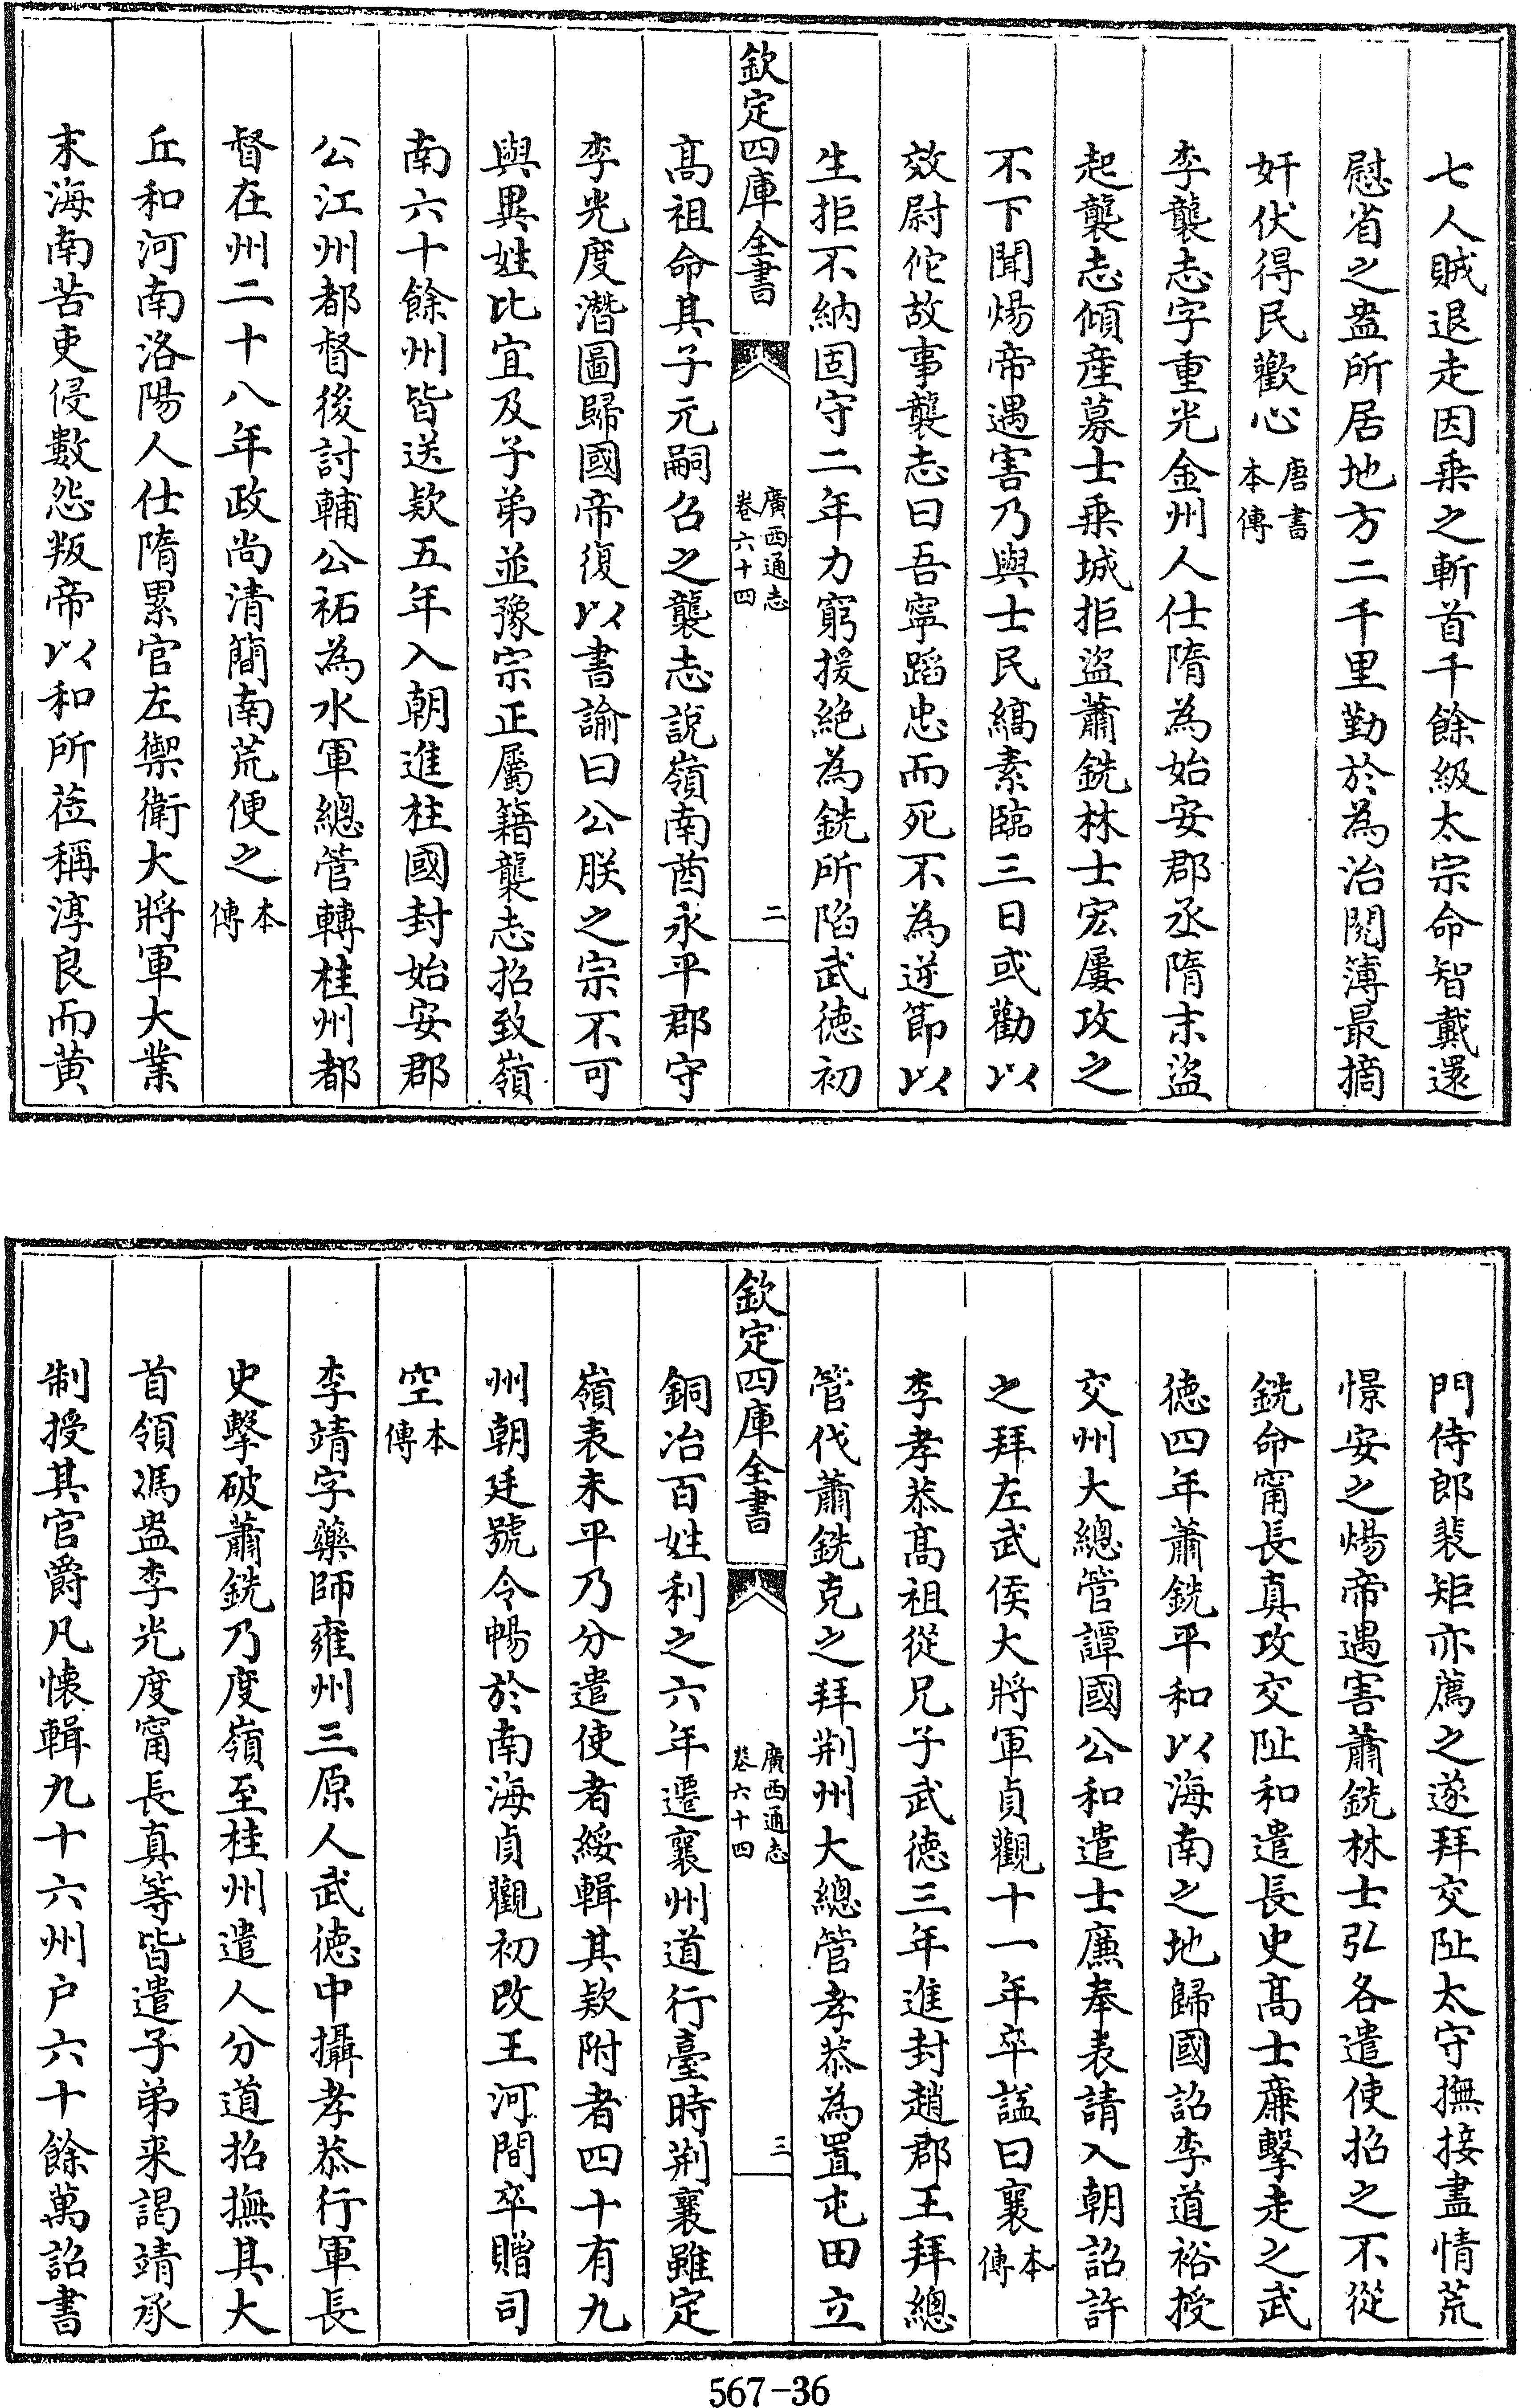 七人賊退走因乗之斬首千餘級太宗命智戴還
慰省之盎所居地方二千里勤於為治閱簿最摘
奸伏得民歡心唐書本傳
李襲志字重光金州人仕隋為始安郡丞隋末盜
起襲志傾産募士乗城拒盜蕭銑林士宏屢攻之
不下聞煬帝遇害乃與士民縞素臨三日或勸以
效尉佗故事襲志曰吾寧蹈忠而死不為逆節以
生拒不納固守二年力窮援絶為銑所陷武徳初
欽定四庫全書
廣西通志
卷六十四
二
髙祖命其子元嗣召之襲志說嶺南酋永平郡守
李光度潛圖歸國帝復以書諭曰公朕之宗不可
與異姓比宜及子弟並豫宗正屬籍襲志招致嶺
南六十餘州皆送欵五年入朝進柱國封始安郡
公江州都督後討輔公祏為水軍總管轉桂州都
督在州二十八年政尚清簡南荒便之本傳
丘和河南洛陽人仕隋累官左禦衛大將軍大業
末海南苦吏侵數怨叛帝以和所莅稱淳良而黄
門侍郎裴矩亦薦之遂拜交阯太守撫接盡情荒
憬安之煬帝遇害蕭銑林士弘各遣使招之不從
銑命甯長真攻交阯和遣長史髙士廉擊走之武
徳四年蕭銑平和以海南之地歸國詔李道裕授
交州大總管譚國公和遣士廉奉表請入朝詔許
之拜左武侯大將軍貞觀十一年卒諡曰襄本傳
李孝恭髙祖從兄子武徳三年進封趙郡王拜總
管伐蕭銑克之拜荆州大總管孝恭為置屯田立
欽定四庫全書
廣西通志
卷六十四
三
銅冶百姓利之六年遷襄州道行臺時荆襄雖定
嶺表未平乃分遣使者綏輯其欵附者四十有九
州朝廷號令暢於南海貞觀初改王河間卒贈司
空本傳
李靖字藥師雍州三原人武徳中攝孝恭行軍長
史擊破蕭銑乃度嶺至桂州遣人分道招撫其大
首領馮盎李光度甯長真等皆遣子弟来謁靖承
制授其官爵凡懐輯九十六州户六十餘萬詔書
567-36